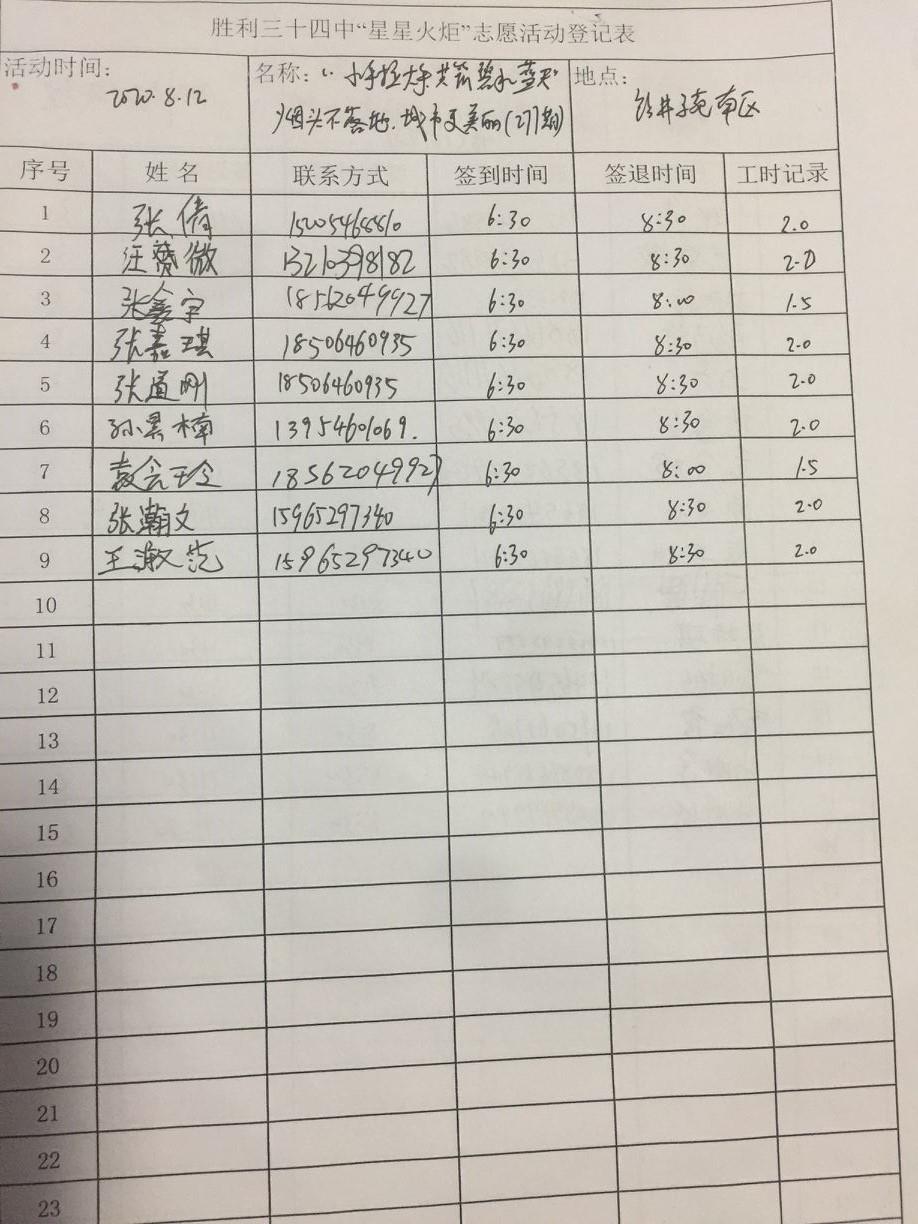 胜利三十四中“星星火炬”志愿活动登记表
活动时间： 名称：“小手拉大手 共筑碧水蓝天” 地点：
2020.8.12 烟头不落地.城市更美丽(27期) 南区
序号 姓名 联系方式 签到时间 签退时间 工时记录
1 张倩 15205468810 6:30 8:30 2.0
2 汪赟微 13210398182 6:30 8:30 2.0
3 张鑫宇 18562049927 6:30 8:00 1.5
4 张嘉琪 18506460935 6:30 8:30 2.0
5 张道刚 18506460935 6:30 8:30 2.0
6 孙昊楠 13954601069. 6:30 8:30 2.0
7 袁会玲 18562049927 6:30 8:00 1.5
8 张瀚文 15965297340 6:30 8:30 2.0
9 王淑范 15965297340 6:30 8:30 2.0
10
11
12
13
14
15
16
17
18
19
20
21
22
23